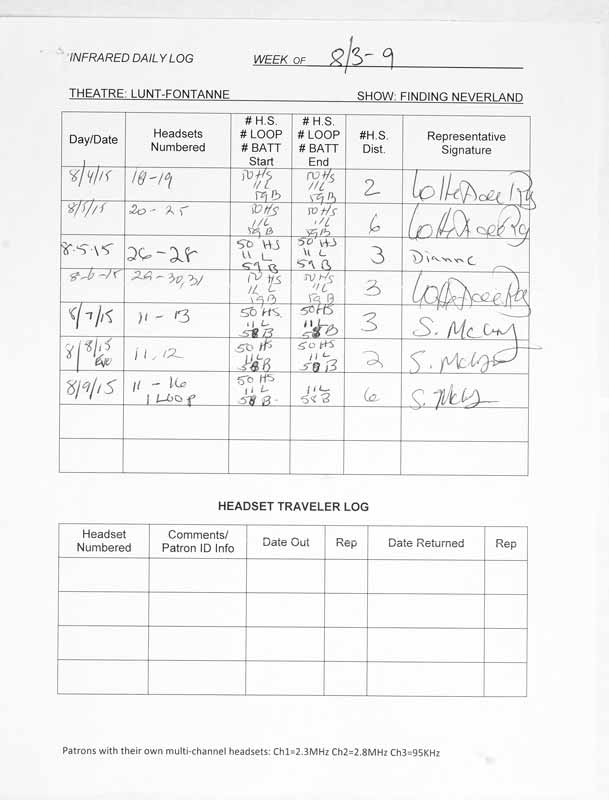 INFRARED DAILY LOG WEEK OF 8/3-9
THEATRE: LUNT-FONTANNE SHOW: FINDING NEVERLAND
Day/Date Headsets Numbered # H.S. # LOOP # BATT Start # H.S. # LOOP # BATT End #H.S. Dist. Representative Signature
8/4/15 18-19 50 HS 11 L 59 B 50 HS 11 L 59 B 2
8/5/15 20-25 50 HS 11 L 59 B 50 HS 11 L 59 B 6
8.5.15 26-28 50 HS 11 L 59 B 50 HS 11 L 59 B 3 Dianne
8-6-15 29-30,31 50 HS 11 L 59 B 50 HS 11 L 59 B 3
8/7/15 11-13 50 HS. 11 L 58 B 50 HS 11 L 58 B 3 S.
8/8/15 Eve 11, 12 50 HS 11 L 58 B 50 HS 11 L 58 B 2 S.
8/9/15 11-16 1 LOOP 50 HS 11 L 58 B. 11 L 58 B 6 S.
HEADSET TRAVELER LOG
Headset Numbered Comments/ Patron ID Info Date Out Rep Date Returned Rep
Patrons with their own multi-channel headsets: Ch1=2.3MHz Ch2=2.8MHz Ch3=95KHz